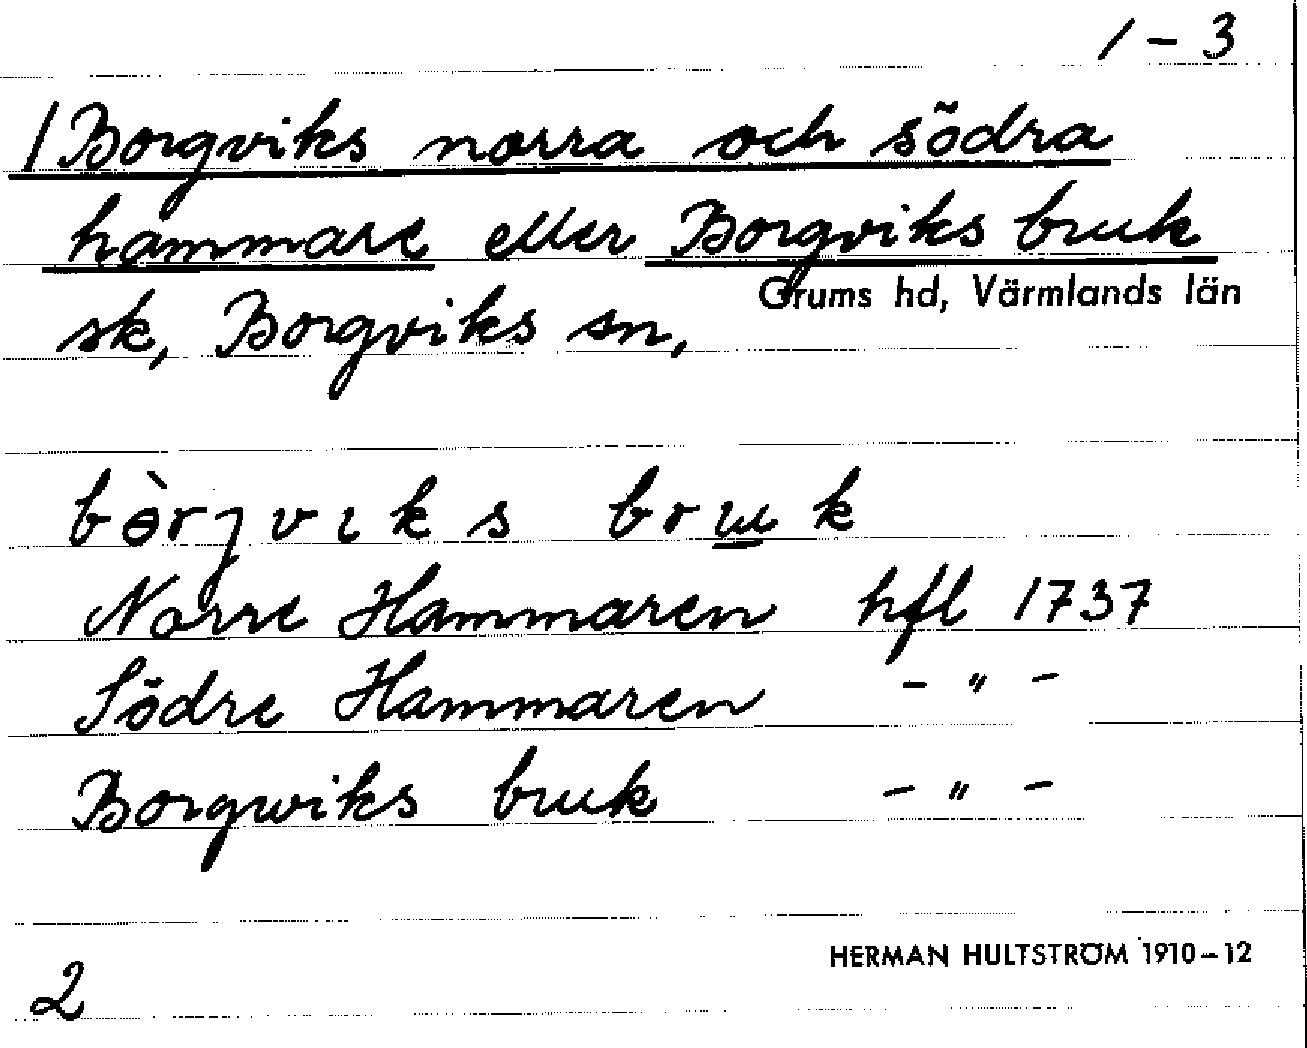 1-3
/Borgviks norra och södra
hammare eller Borgviks bruk
Grums hd, Värmlands län
sk, Borgviks sn,
bruk
Norre Hammaren hfl 1737
Södre Hammaren -"-
Borgwiks bruk -"-
HERMAN HULTSTRÖM 1910-12
2